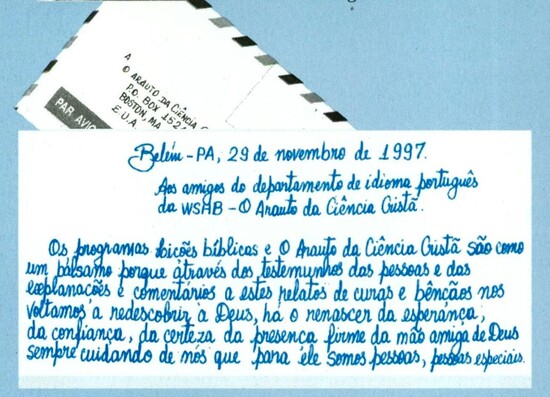 A
O ARAUTO DA CIÊNCIA
P.O. BOX 152
BOSTON, MA
E.U.A
PAR AVIO
Belém-PA, 29 de novembro de 1997.
Aos amigos do departamento de idioma português
da WSHB - O Arauto da Ciência Cristã.
Os programas Lições bíblicas e O Arauto da Ciência Cristã são como
um bálsamo porque através dos testemunhos das pessoas e das
explanações e comentários a estes relatos de curas e bênçãos nos
voltamos a redescobrir a Deus, há o renascer da esperança,
da confiança, da certeza da presença firme da mão amiga de Deus
sempre cuidando de nós que para ele somos pessoas, pessoas especiais.